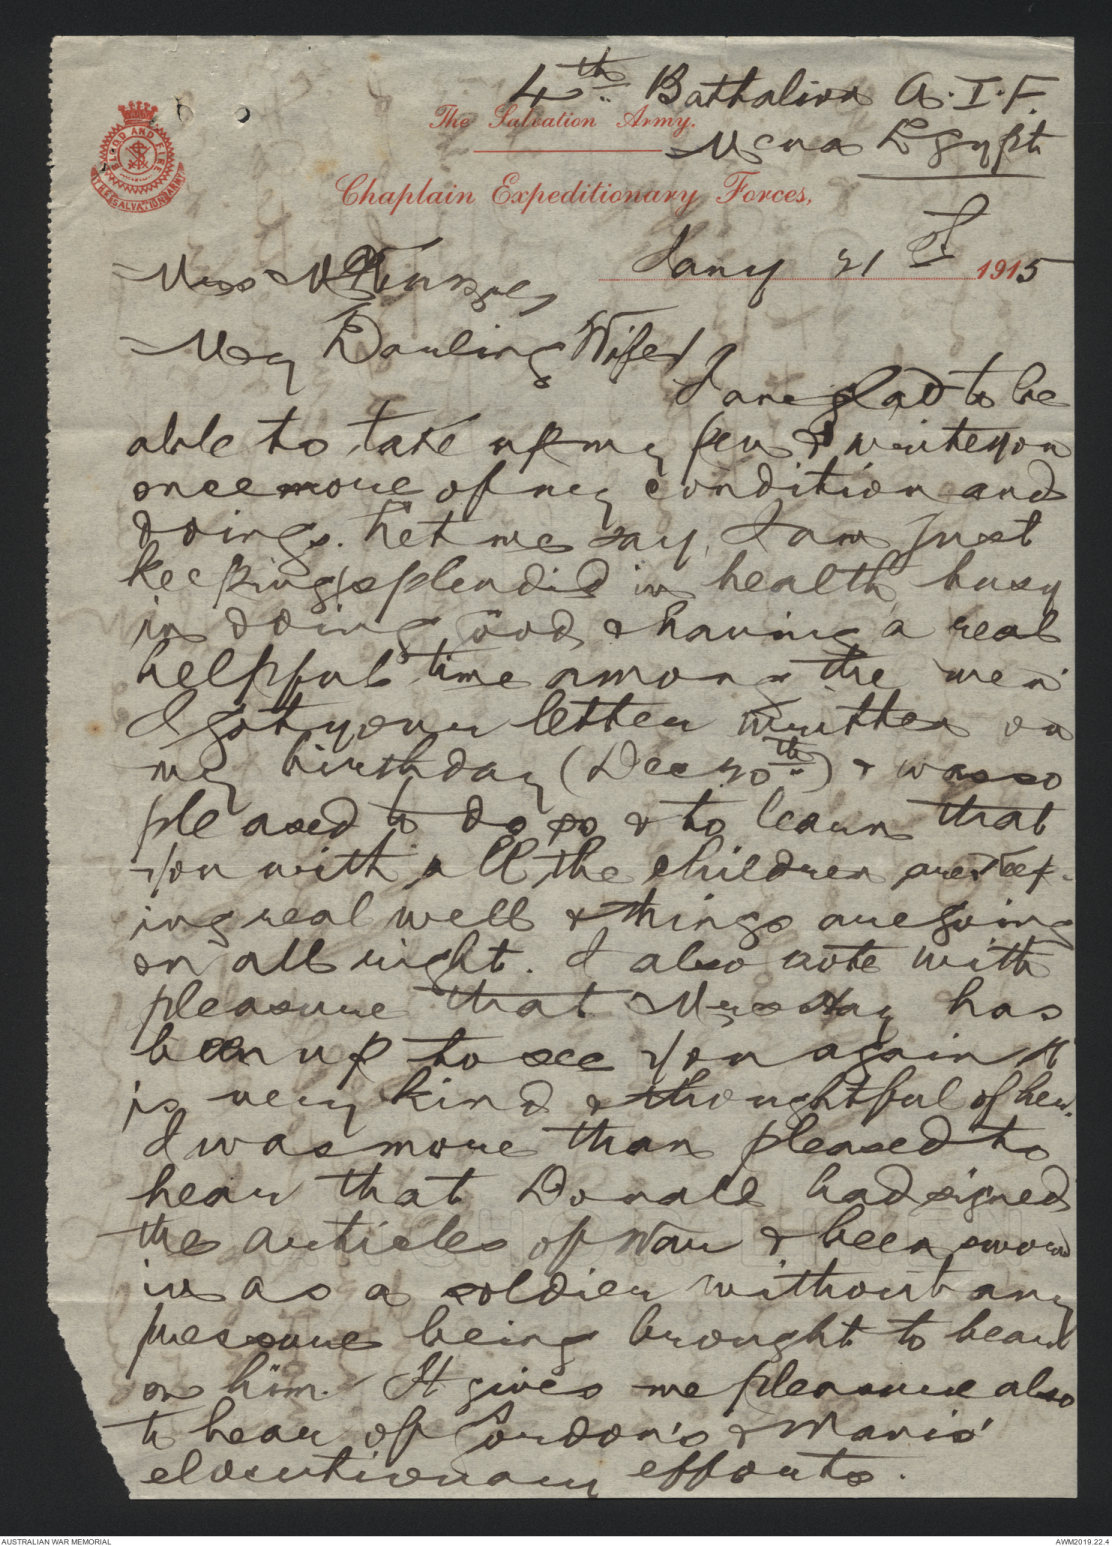 4th. Battalion A.I.F.
The Salvation Army.
Mena Egypt
BLOOD AND FIRE
THE SALVATION ARMY
Chaplain Expeditionary Forces,
Jany 21st 1915
Mrs McKenzie,
My Darling Wife,
I am glad to be
able to take up my pen & write you
once more of my condition and
doings. Let me say, I am just
keeping splendid in health, busy
in doing good, & having a real
helpful time among the men.
I got your letter written on
my birthday (Dec 20th) & was so
pleased to do so & to learn that
you with all the children are keep-
ing real well & things are going
on all right. I also note with
pleasure that Mrs Hay has
been up to see you again It
is very kind & thoughtful of her.
I was more than pleased to
hear that Donald had signed
the articles of War & been sworn
in as a soldier without any
pressure being brought to bear
on him. It gives me pleasure also
to hear of Gordon's & Mavis'
elocutionary efforts.
AUSTRALIAN WAR MEMORIAL
AWM2019.22.4